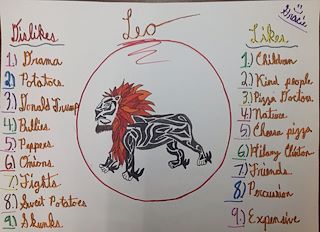 Gracie
Leo
Dislikes
1.) Drama
2.) Potatoes
3.) Donald Trump
4.) Bullies
5.) Peppers
6.) Onions
7.) Fights
8.) Sweet Potatoes
9.) Skunks
Likes
1.) Children
2.) Kind people
3.) Pizza
4.) Native
5.) Cheese pizza
6.) Hilary Clinton
7.) Friends
8.) Percussion
9.) Expensive